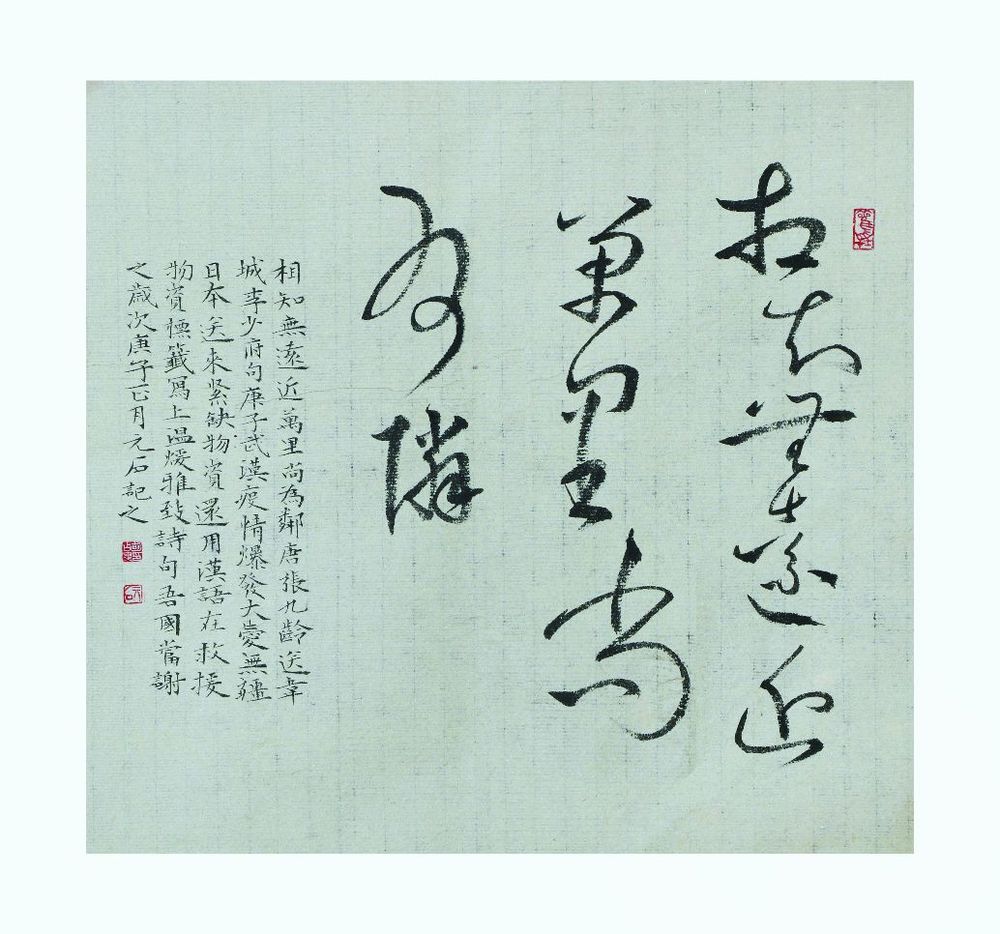 相知無遠近
萬里尚
為隣
相知無遠近萬里尚為鄰唐張九齡送韋
城李少府句庚子武漢疫情爆發大愛無疆
日本送来紧缺物資還用漢語在救援
物資標籤寫上温煖雅致詩句吾國當謝
之歲次庚子正月元石記之